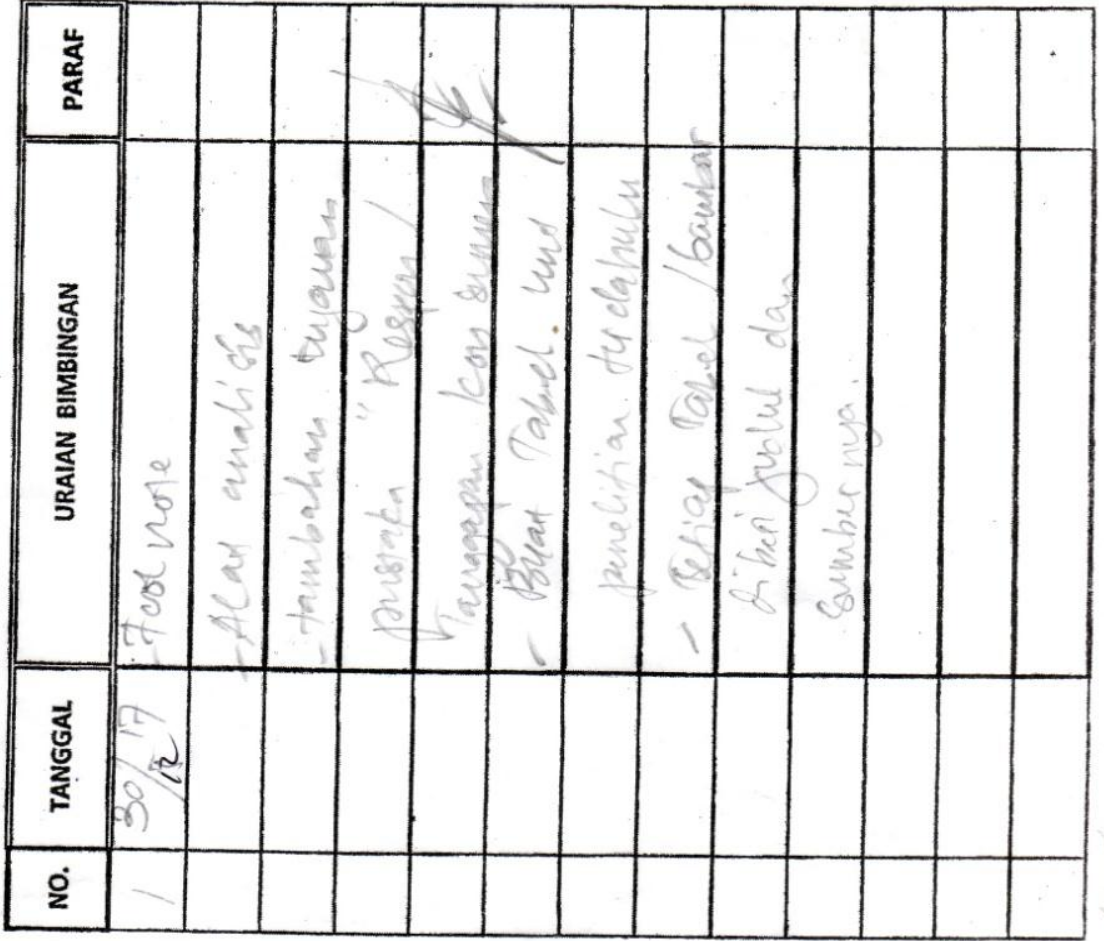 NO. TANGGAL URAIAN BIMBINGAN PARAF
1 30/12 17 - Foot note
- Alat analisis
- tambahan tinjauan
pustaka "Respon/
Tanggapan konsumen
- Buat Tabel. unt
penelitian terdahulu
- Setiap Tabel/Gambar
diberi judul dan
Sumbernya.